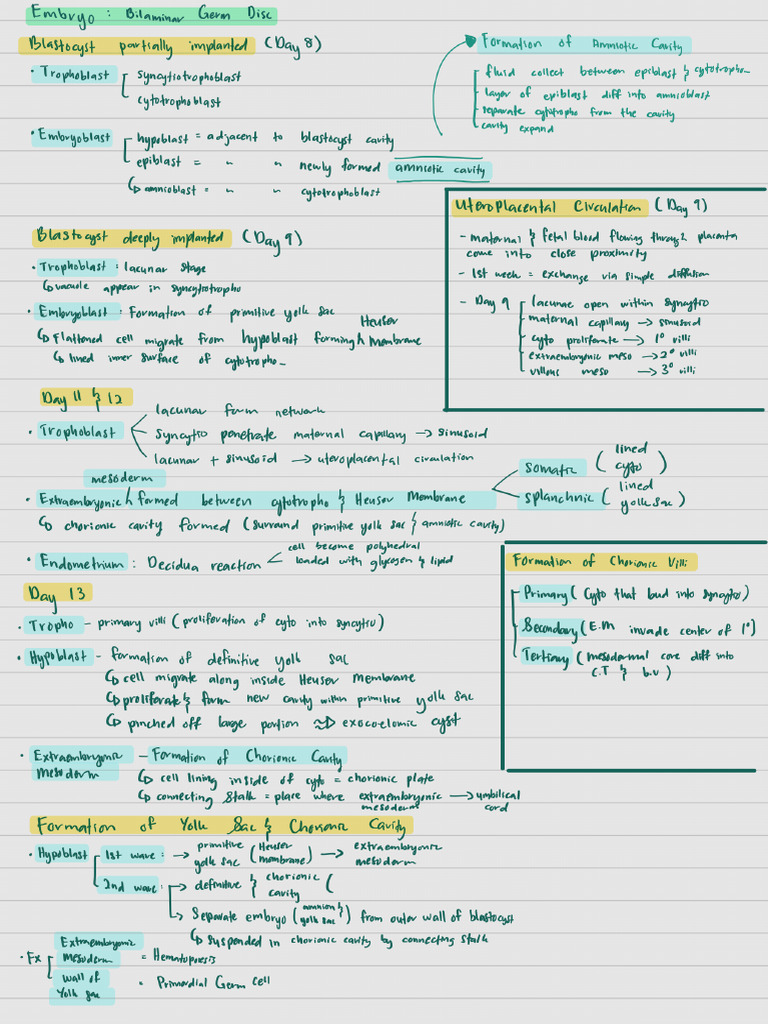 Embryo : Bilaminar Germ Disc
Blastocyst partially implanted (Day 8)
• Trophoblast
syncytiotrophoblast
cytotrophoblast
• Embryoblast
hypoblast = adjacent to blastocyst cavity
epiblast = " " newly formed amniotic cavity
↳ amnioblast = " " cytotrophoblast
Formation of Amniotic Cavity
fluid collect between epiblast & cytotropho-
layer of epiblast diff into amnioblast
separate cytotropho from the cavity
cavity expand
Blastocyst deeply implanted (Day 9)
• Trophoblast = lacunar stage
↳ vacuole appear in syncytiotropho
• Embryoblast : Formation of primitive yolk sac
↳ Flattened cell migrate from hypoblast forming Heuser Membrane
↳ lined inner surface of cytotropho-
Uteroplacental Circulation (Day 9)
- maternal & fetal blood flowing through placenta
come into close proximity
- 1st week = exchange via simple diffusion
- Day 9
lacunae open within syncytio
maternal capillary → sinusoid
cyto proliferate → 1° villi
extraembryonic meso → 2° villi
villous meso → 3° villi
Day 11 & 12
• Trophoblast
lacunar form network
syncytio penetrate maternal capillary → sinusoid
lacunar + sinusoid → uteroplacental circulation
• Extraembryonic mesoderm formed between cytotropho & Heuser Membrane
somatic (lined cyto)
splanchnic (lined yolk sac)
↳ chorionic cavity formed (surround primitive yolk sac & amniotic cavity)
• Endometrium : Decidua reaction
cell become polyhedral
loaded with glycogen & lipid
Day 13
• Tropho - primary villi (proliferation of cyto into syncytio)
• Hypoblast - formation of definitive yolk sac
↳ cell migrate along inside Heuser Membrane
↳ proliferate & form new cavity within primitive yolk sac
↳ pinched off large portion ⇒ exocoelomic cyst
Formation of Chorionic Villi
Primary (Cyto that bud into syncytio)
Secondary (E.M invade center of 1°)
Tertiary (mesodermal core diff into
C.T & b.v)
• Extraembryonic mesoderm - Formation of Chorionic Cavity
↳ cell lining inside of cyto = chorionic plate
↳ connecting stalk = place where extraembryonic mesoderm → umbilical cord
Formation of Yolk Sac & Chorionic Cavity
• Hypoblast
1st wave : → primitive yolk sac (Heuser membrane) → extraembryonic mesoderm
2nd wave : → definitive & chorionic cavity (
→ Separate embryo (amnion & yolk sac) from outer wall of blastocyst
↳ suspended in chorionic cavity by connecting stalk
• Fx
Extraembryonic mesoderm = Hematopoesis
Wall of Yolk sac • Primordial Germ cell